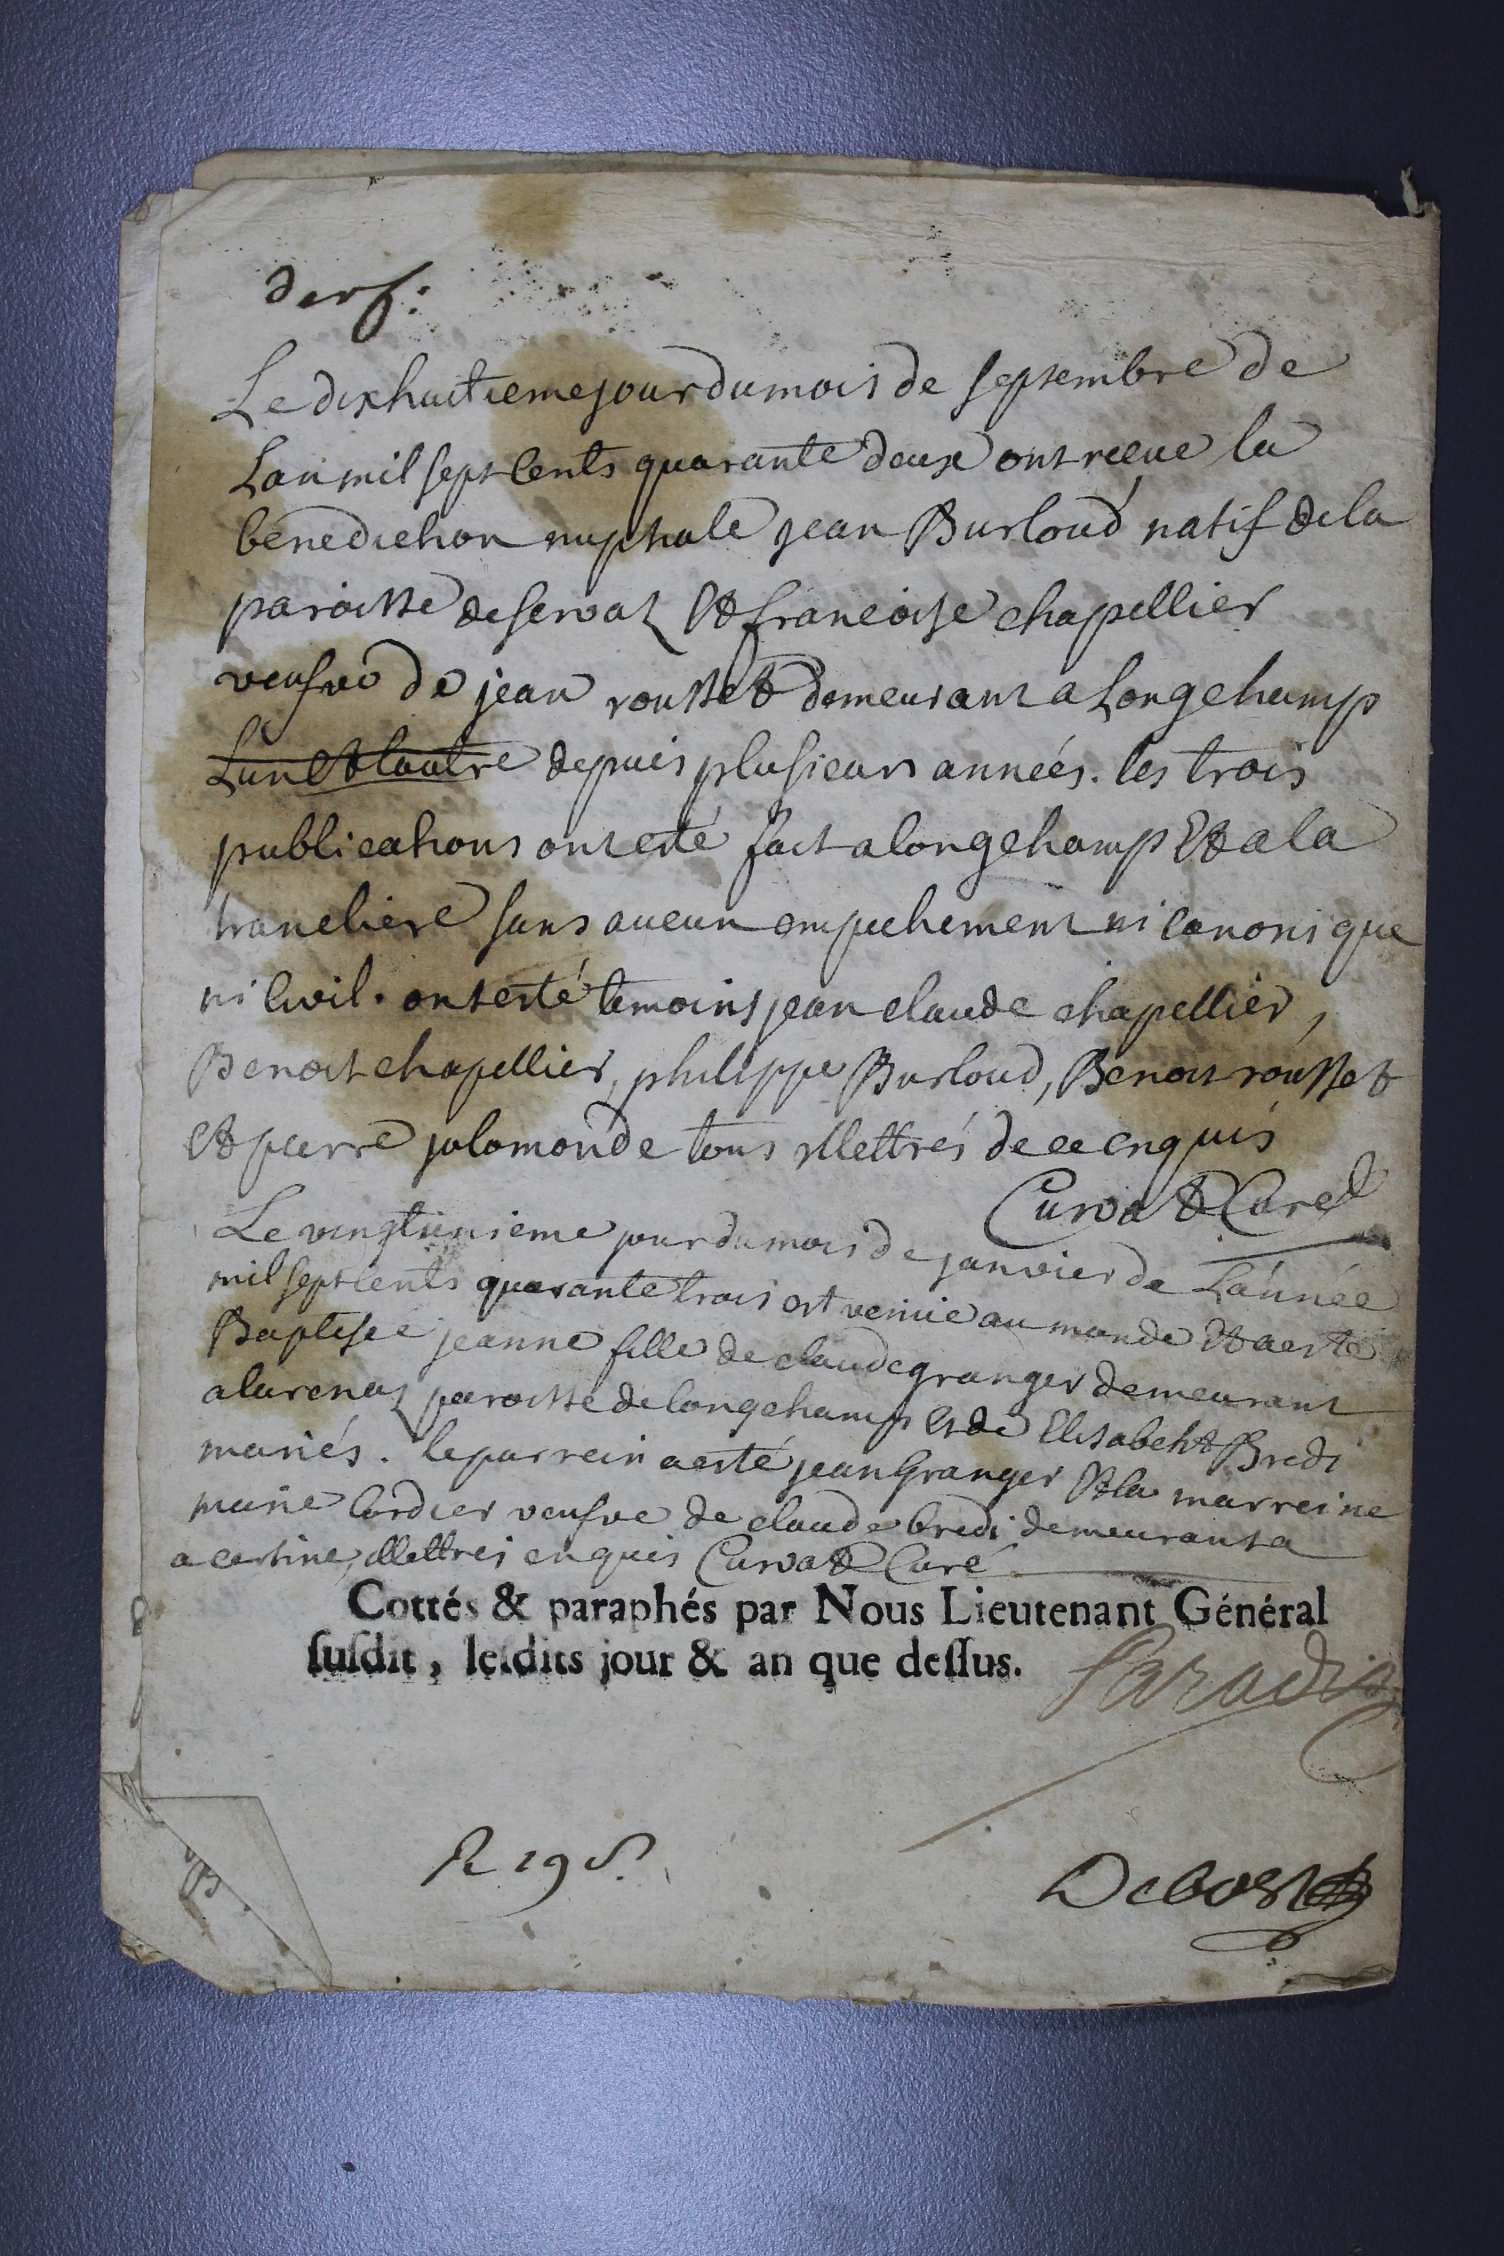 derf:
Le dixhuitieme jour du mois de septembre de
Lan mil sept Cents quarante deux ont receue la
benediction nuptiale jean Burloud natif de la
paroisse de Servas Et francoise chapellier
veufve de jean rousset demeurant a Longchamp
Lun Et lautre depuis plusieurs années. les trois
publications ont esté fait a longchamp Et a la
trancliere sans aucun empechement ni canonique
ni Civil. ont esté temoins jean claude chapellier,
Benoit chapellier, philippe Burloud, Benoit rousset
et pierre jolomonde tous illettrés de ce enquis
Curvat Curé
Le vingtunieme jour du mois de janvier de L'année
mil sept cents quarante trois est venue au monde Et a esté
Baptisée jeanne fille de claude granger demeurant
a larenas paroisse de longchamp et de Elisabeht Bredi
mariés. le parrein a esté jean Granger Et la marreine
marie Cordier veufve de claude bredi demeurant a
a certine, illettrés enquis Curvat Curé
Cottés & paraphés par Nous Lieutenant Général
susdit, lesdits jour & an que dessus.
Paradis
R 19 s.
Debost